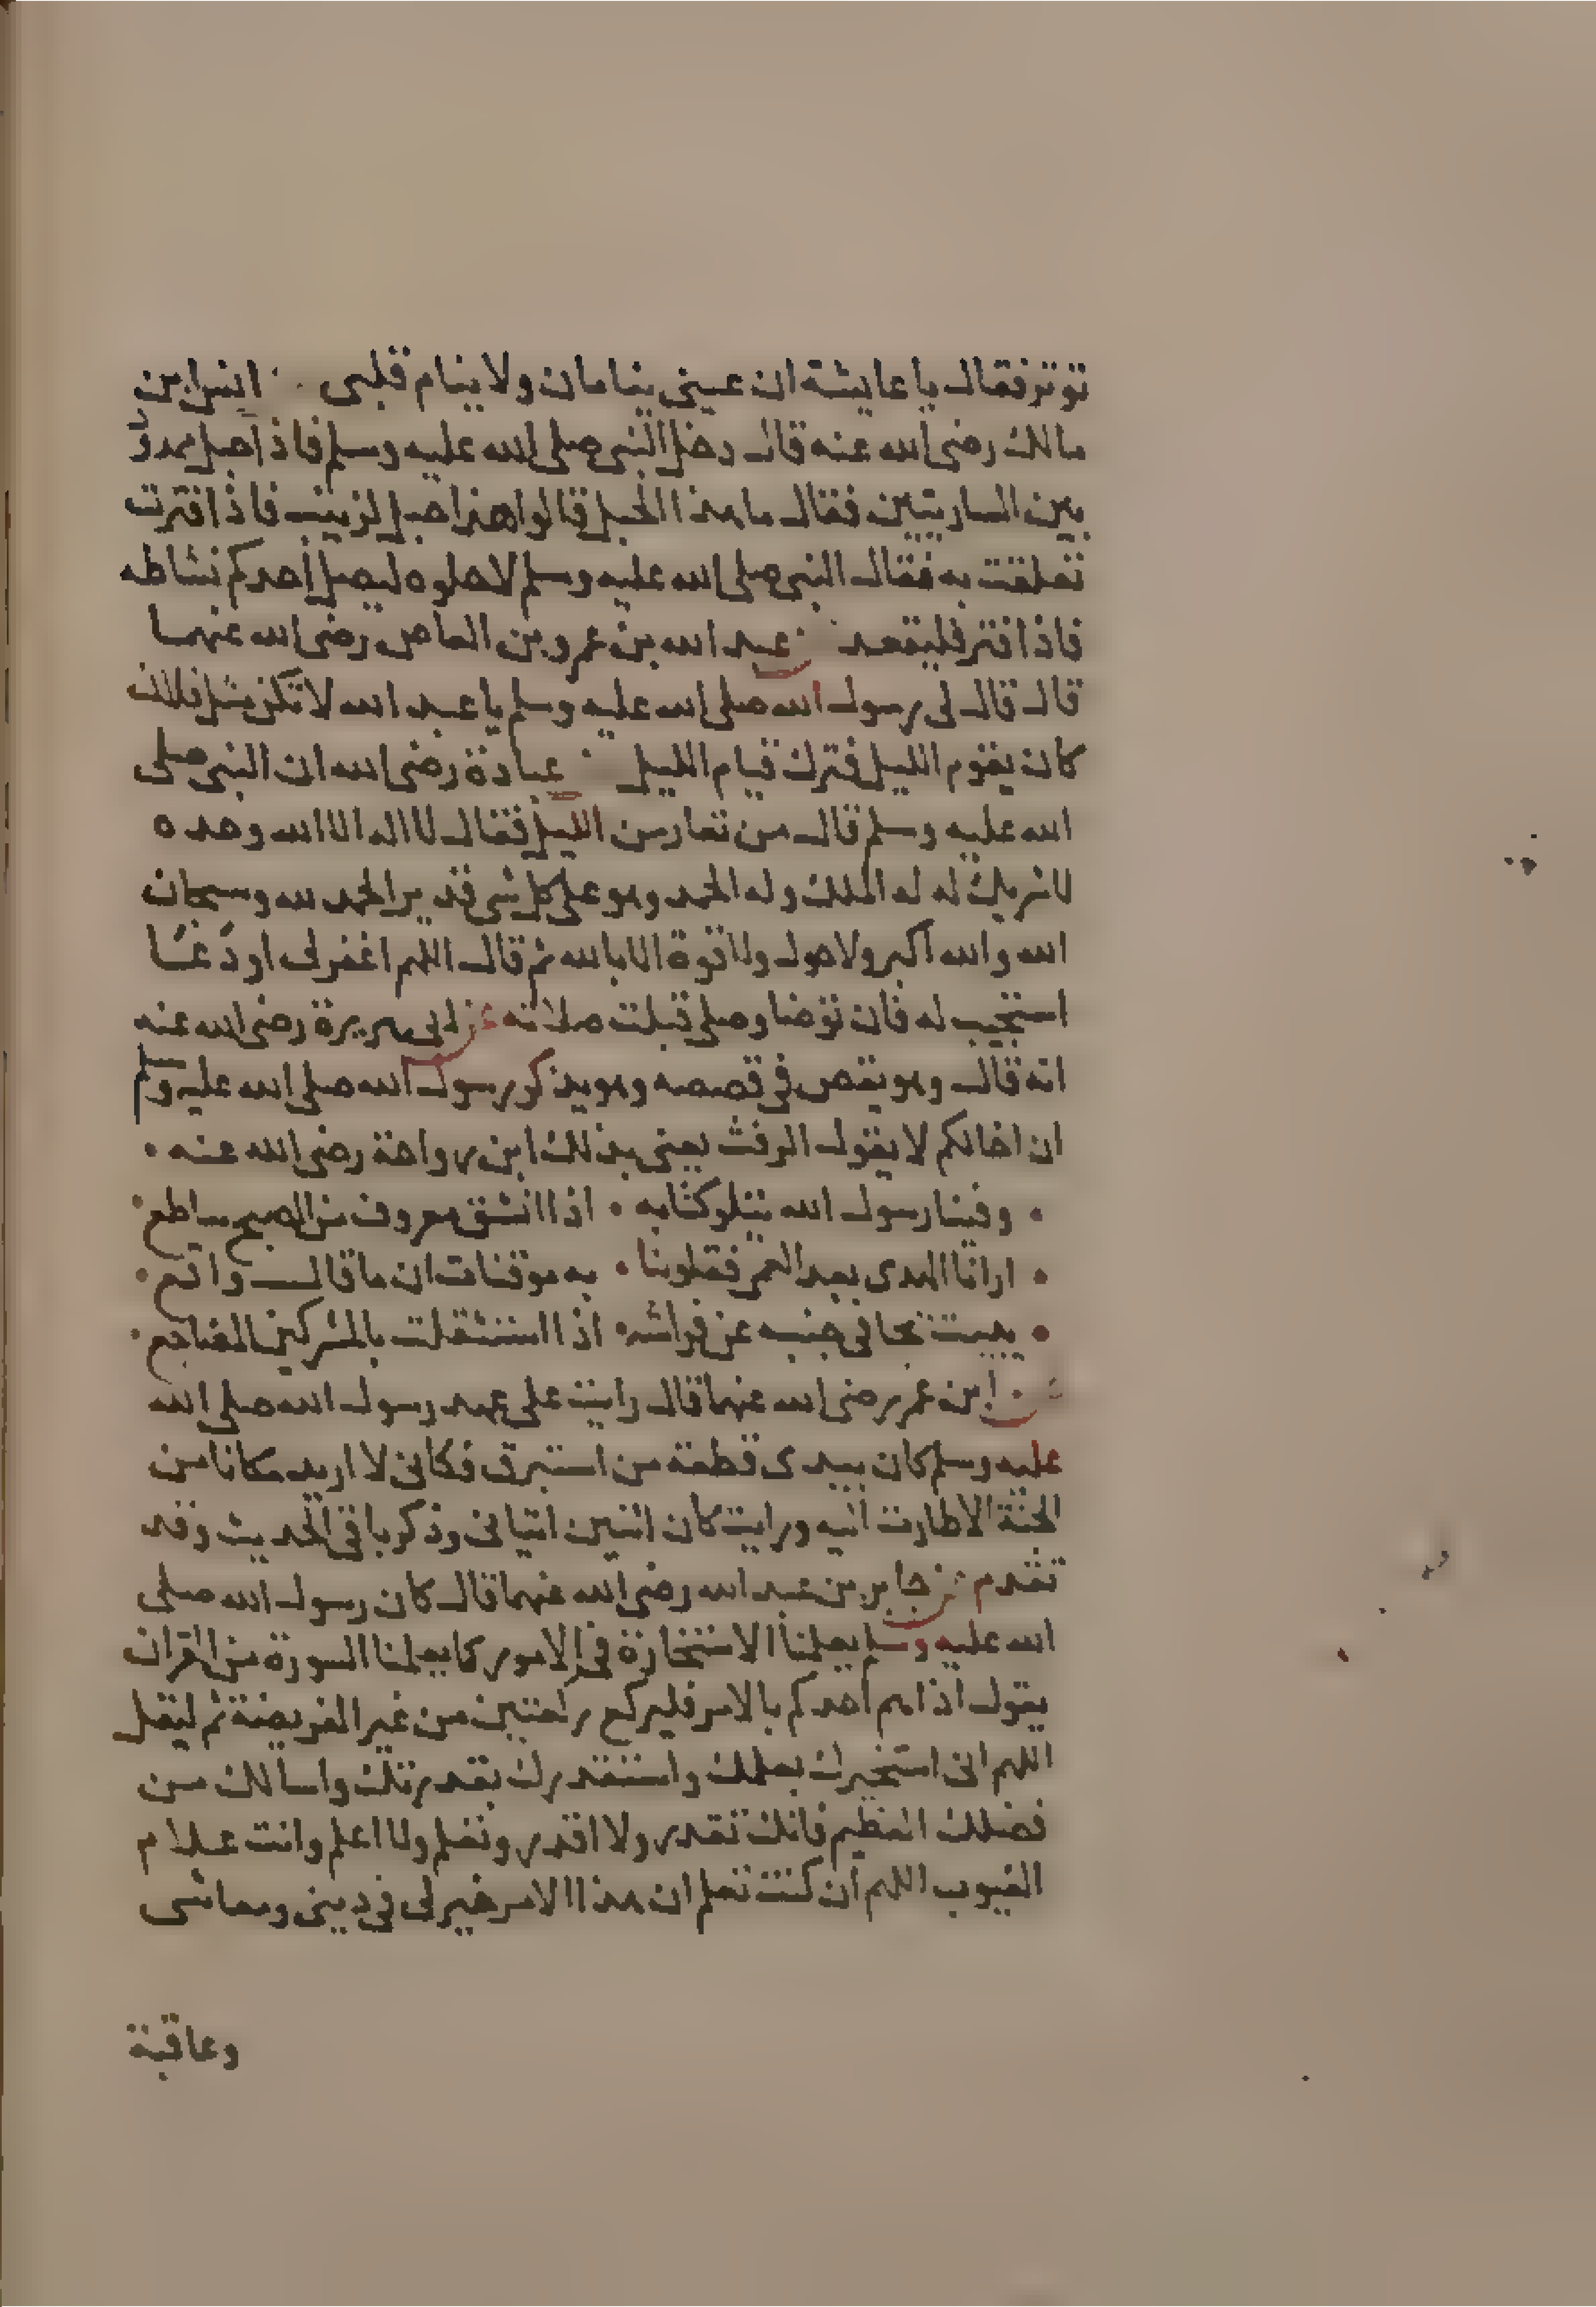 توتر فقال يا عايشة ان عيني ينامان ولا ينام قلبى انس ابن
مالك رضى الله عنه قال دخل النبى صلى الله عليه وسلم فاذا حبل ممدود
بين الساريتين فقال ما هذا الحبل قالوا هذا حبل لزينب فاذا فترت
تعلقت به فقال النبى صلى الله عليه وسلم لا حلوه ليصل احدكم نشاطه
فاذا فتر فليقعد عبد الله بن عمرو بن العاص رضى الله عنهما
قال قال لى رسول الله صلى الله عليه وسلم يا عبد الله لا تكن مثل فلان
كان يقوم الليل فترك قيام الليل عبادة رضى الله ان النبى صلى
الله عليه وسلم قال من تعار من الليل فقال لا اله الا الله وحده
لا شريك له له الملك وله الحمد وهو على كل شى قدير الحمد لله وسبحان
الله والله اكبر ولا حول ولا قوة الا بالله ثم قال اللهم اغفر لى او دعا
استجيب له فان توضا وصلى قبلت صلاته عن ابى هريرة رضى الله عنه
انه قال وهو يقص فى قصصه وهو يذكر رسول الله صلى الله عليه وسلم
ان اخا لكم لا يقول الرفث يعنى بذلك ابن رواحة رضى الله عنه
وفينا رسول الله يتلو كتابه اذا انشق معروف من الصبح ساطع
ارانا الهدى بعد العمى فقلوبنا به موقنات ان ما قال واقع
يبيت يجافى جنبه عن فراشه اذا استثقلت بالمشركين المضاجع
عن ابن عمر رضى الله عنهما قال رايت على عهد رسول الله صلى الله
عليه وسلم كان بيدى قطعة من استبرق فكانى لا اريد مكانا من
الجنة الا طارت اليه ورايت كان اثنين اتيانى وذكر باقى الحديث وقد
تقدم عن جابر بن عبد الله رضى الله عنهما قال كان رسول الله صلى
الله عليه وسلم يعلمنا الاستخارة فى الامور كما يعلمنا السورة من القران
يقول اذا هم احدكم بالامر فليركع ركعتين من غير الفريضة ثم ليقل
اللهم انى استخيرك بعلمك واستقدرك بقدرتك واسالك من
فضلك العظيم فانك تقدر ولا اقدر وتعلم ولا اعلم وانت علام
الغيوب اللهم ان كنت تعلم ان هذا الامر خير لى فى دينى ومعاشى
وعاقبة